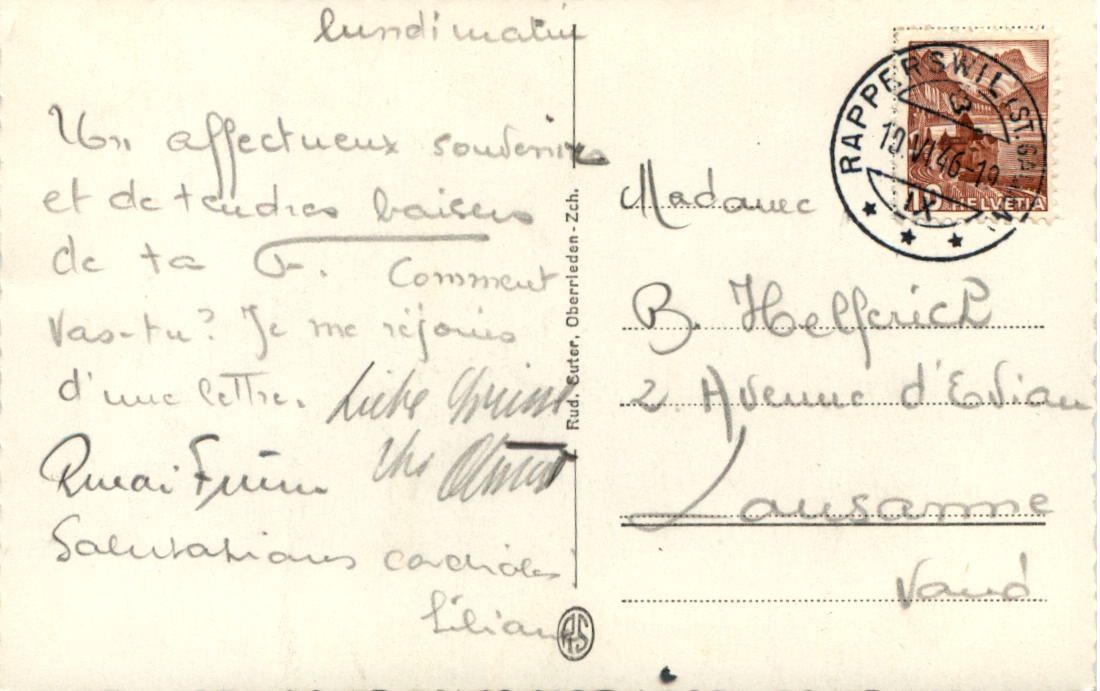 lundi matin
Un affectueux souvenir
et de tendres baisers
de ta Comment
vas-tu? Je me réjouis
d'une lettre. Liebe
Salutations cordiales
Liliane
Rud. Suter, Oberrieden - Zch.
RS
RAPPERSWIL (ST. GALLEN)
10.VI.46-19
IX
10 HELVETIA
Madame
B. Helferich
2. Avenue d'Evian
Lausanne
Vaud